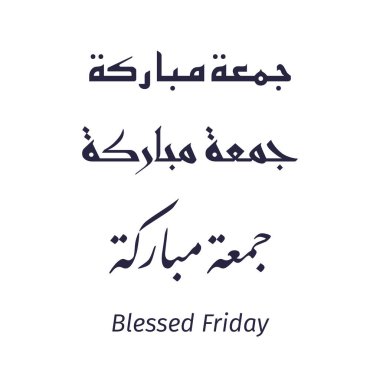 جمعة مباركة
جمعة مباركة
جمعة مباركة
Blessed Friday